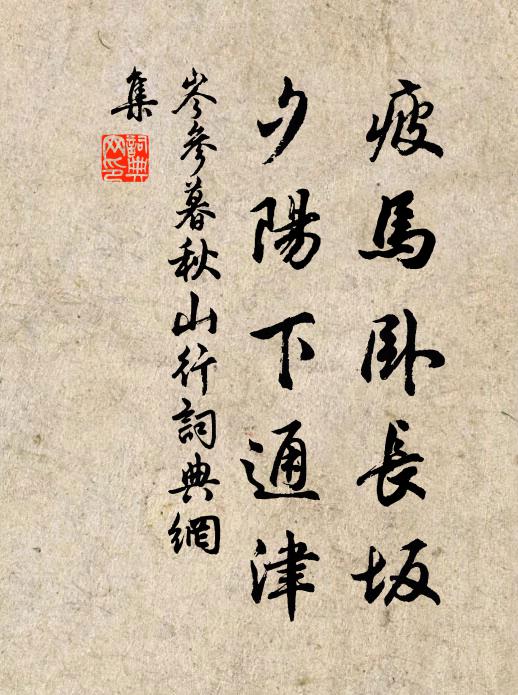 疲馬卧長坂
夕陽下通津
岑參暮秋山行詞典網
集
詞典
网印